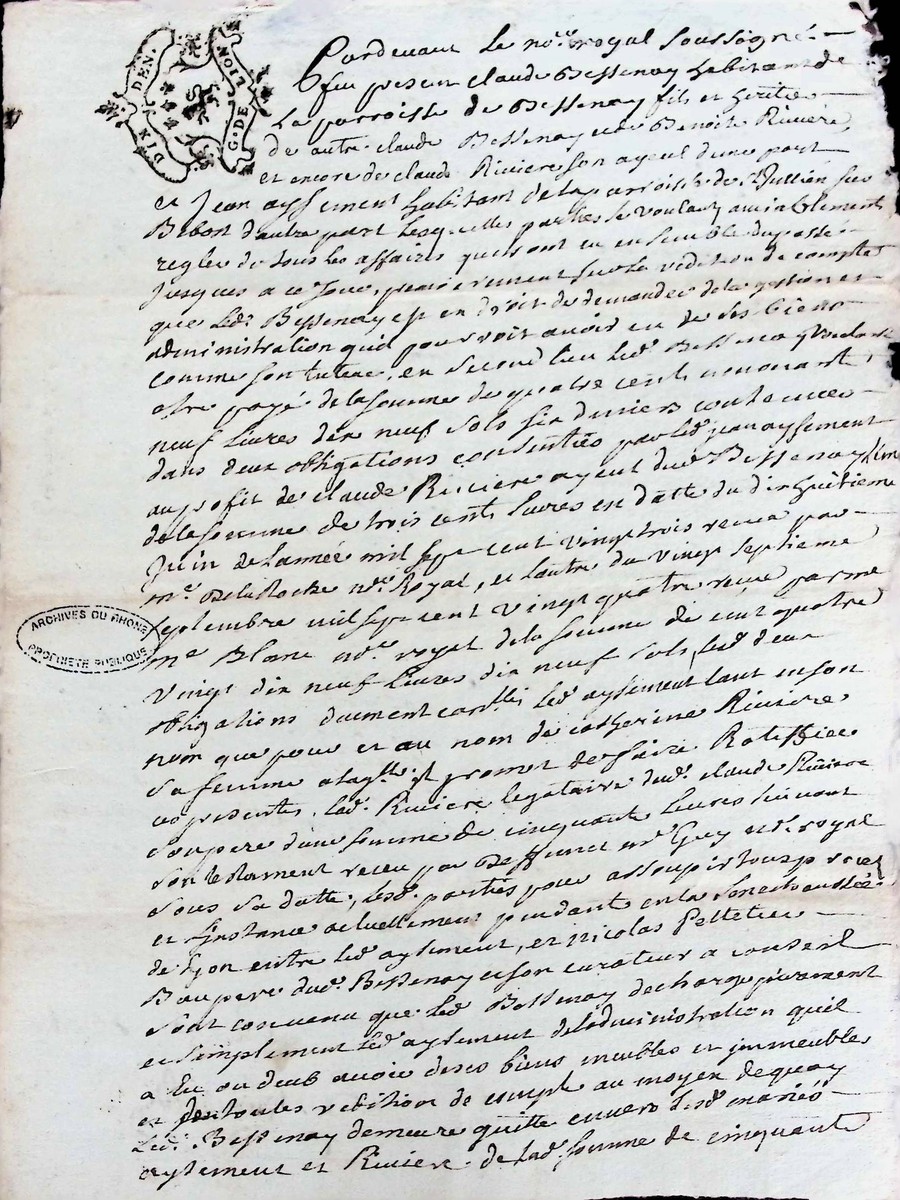 DIX DEN.
G. DE LION
Pardevant le no.re royal soussigné
fut present claude Bessenay habitant de
La parroisse de Bessenay fils et heritier
de autre claude Bessenay et de Benoite Riviere,
et encore de claude Riviere son ayeul d'une part
et Jean ayssement habitant de la parroisse de St Jullien sur
Bibost d'autre part Lesquelles parties se voulant amiablement
regler de tous les affaires quils ont eu ensemble du passé
Jusques a ce Jour, premierement sur la redition de compte
que led. Bessenay est en droit de demander de la gestion et
administration quil pourroit avoir eu de ses biens
comme son tuteur, en second lieu led. Bessenay
etre payé de la somme de quatre cent nonante
neuf livres dix neuf sols six deniers contenues
dans deux obligations consenties par led. jean ayssement
au profit de claude Riviere ayeul dud. Bessenay l'une
de la somme de trois cent livres en datte du dix huitieme
Juin de l'année mil sept cent vingt trois receue par
me. Delaroche no.re Royal, et l'autre du vingt septieme
septembre mil sept cent vingt quatre receue par me
me Blanc no.re royal de la somme de cent quatre
vingt dix neuf livres dix neuf sols, lesd. deux
obligations duement con.llées led. ayssement tant en son
nom que pour et au nom de catherine Riviere
sa femme a laq.lle il promet de faire Ratiffier
ces presentes, lad. Riviere legataire dud. claude Riviere
son pere d'une somme de cinquante livres suivant
son testament receu par deffunct me Guy no.re royal
sous sa datte, lesd. parties pour assoupir tous proces
et Instance actuellement pendante en la Senechaussée
de Lyon entre led. ayssement, et nicolas Pelletier
Beaupere dud. Bessenay et son curateur a conseil
sont convenu que led. Bessenay decharge purement
et simplement led. ayssement de l'administration quil
a Eu ou deub avoir de ses biens meubles et immeubles
et de toutes redition de compte au moyen de quoy
led. Bessenay demeure quitte envers lesd. mariés
ayssement et Riviere de lad. somme de cinquante
ARCHIVES DU RHONE
PROPRIETE PUBLIQUE